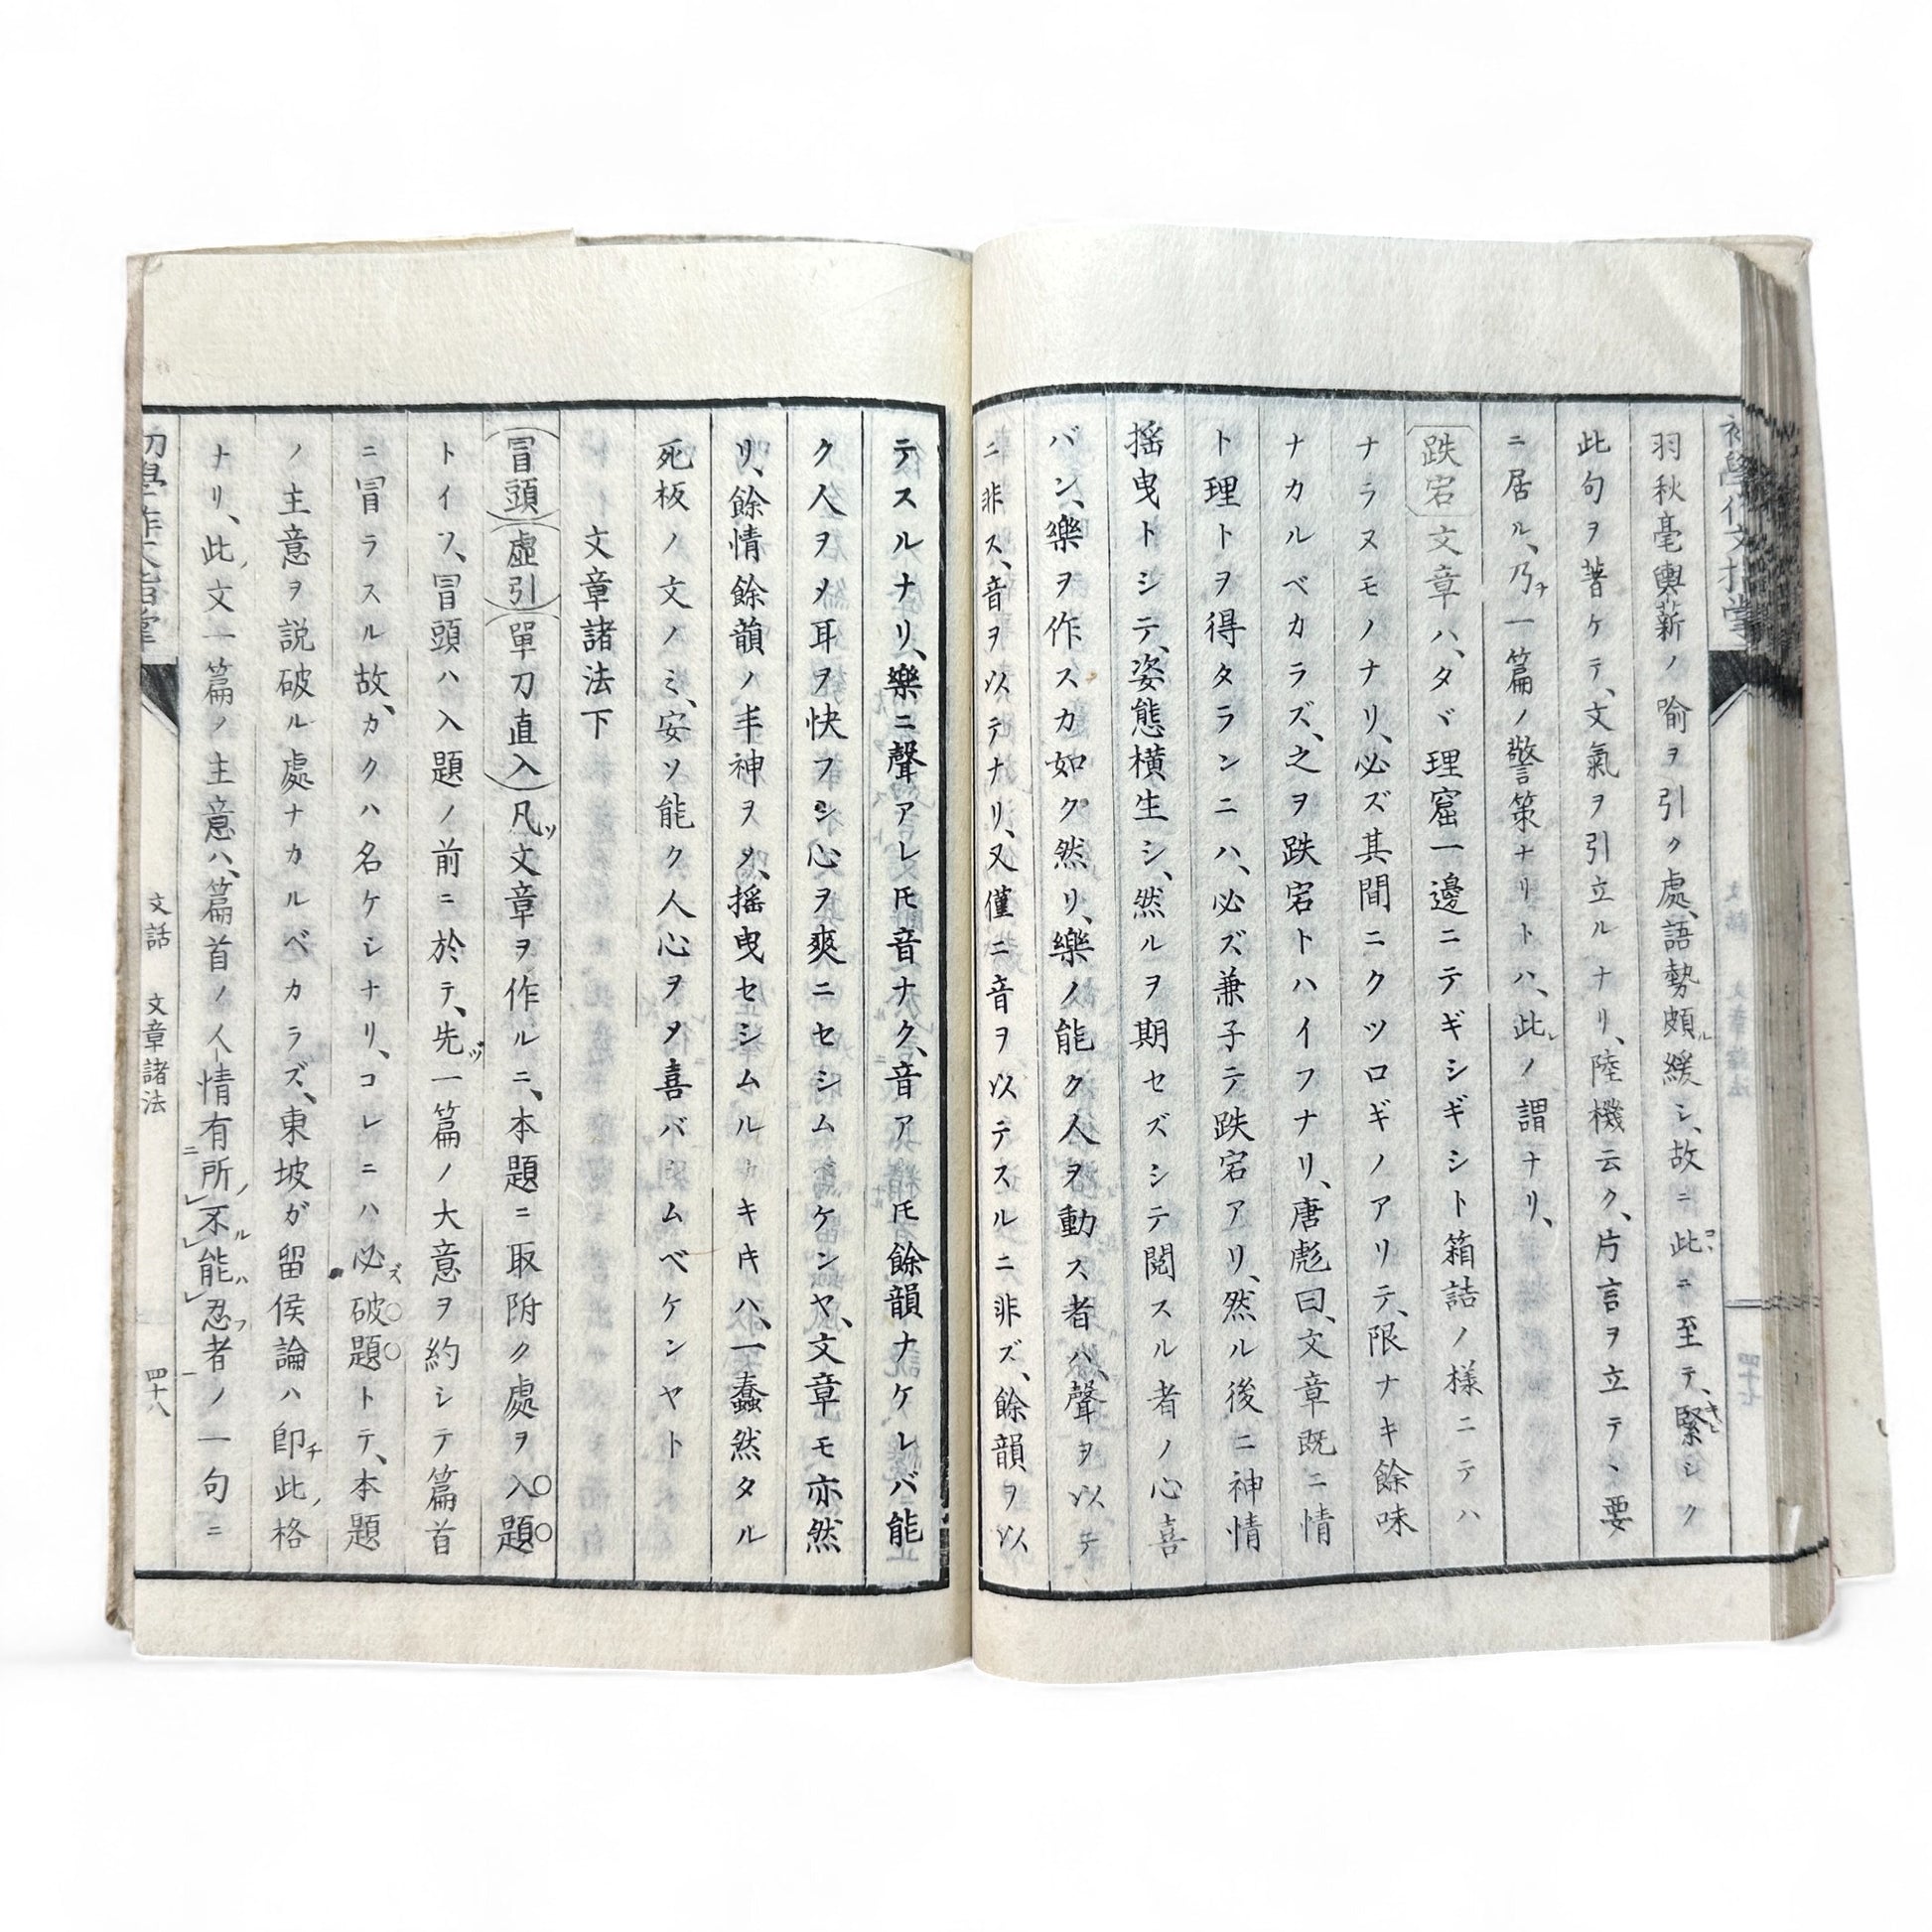 羽秋毫輿薪ノ喩ヲ引ク處、語勢頗ル緩シ、故ニ此ニ至テ、緊シク
此句ヲ著ケテ、文氣ヲ引立ルナリ、陸機云ク、片言ヲ立テヽ要
ニ居ル、乃チ一篇ノ警策ナリトハ、此レノ謂ナリ、
跌宕 文章ハ、タヾ理窟一邊ニテギシギシト箱詰ノ様ニテハ
ナラヌモノナリ、必ズ其間ニクツロギノアリテ、限ナキ餘味
ナカルベカラズ、之ヲ跌宕トハイフナリ、唐彪曰、文章既ニ情
ト理トヲ得タランニハ、必ズ兼子テ跌宕アリ、然ル後ニ神情
揺曳トシテ、姿態横生シ、然ルヲ期セズシテ閲スル者ノ心喜
バン、樂ヲ作スカ如ク然リ、樂ノ能ク人ヲ動ス者ハ、聲ヲ以テ
ニ非ス、音ヲ以テナリ、又僅ニ音ヲ以テスルニ非ズ、餘韻ヲ以
テスルナリ、樂ニ聲アレ𪜈音ナク、音ア𪜈餘韻ナケレバ能
ク人ヲメ耳ヲ快フシ心ヲ爽ニセシム ケンヤ、文章モ亦然
リ、餘情餘韻ノ丰神ヲメ、揺曳セシムル キ𪜈ハ、一蠢然タル
死板ノ文ノミ、安ソ能ク人心ヲメ喜バシムベケンヤト
文章諸法下
冒頭 虚引 單刀直入 凡ソ文章ヲ作ルニ、本題ニ取附ク處ヲ入題
トイフ、冒頭ハ入題ノ前ニ於テ、先ヅ一篇ノ大意ヲ約シテ篇首
ニ冒ラスル故、カクハ名ケシナリ、コレニハ必ズ破題トテ、本題
ノ主意ヲ説破ル處ナカルベカラズ、東坡が留侯論ハ即チ此ノ格
ナリ、此ノ文一篇ノ主意ハ、篇首ノ人情有所不能忍者ノ一句ニ
初學作文指掌
文話 文章諸法 四十八